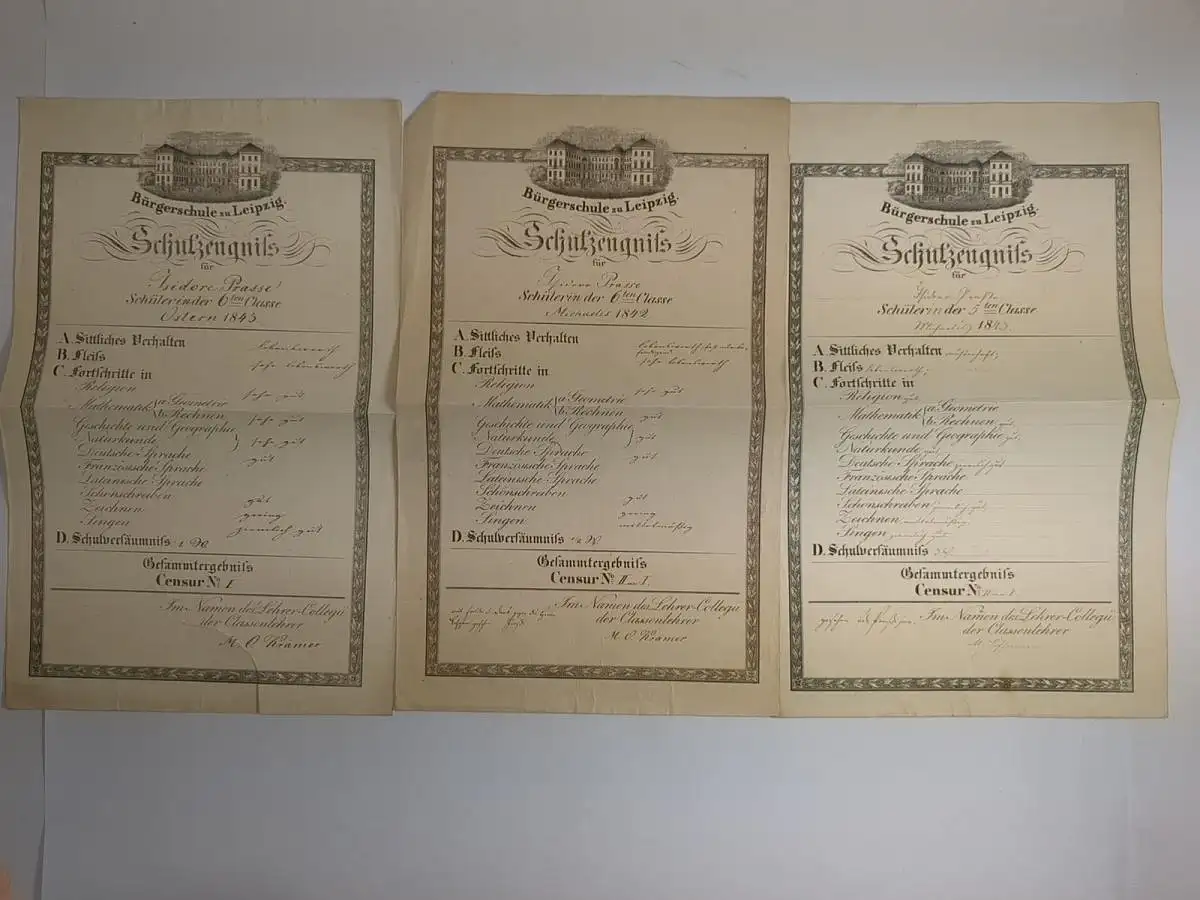 Bürgerschule zu Leipzig.
Schulzeugniſs
für
Isidore Prasse
Schüler in der 6ten Classe
Ostern 1843
A. Sittliches Verhalten lobenswerth
B. Fleiſs sehr lobenswerth
C. Fortschritte in
Religion sehr gut
Mathematik a. Geometrie
b. Rechnen sehr gut
Geschichte und Geographie
Naturkunde sehr gut
Deutsche Sprache gut
Französische Sprache
Lateinische Sprache
Schönschreiben gut
Zeichnen gering
Singen ziemlich gut
D. Schulversäumniſs
Gesammtergebniſs
Censur No. I
Im Namen des Lehrer-Collegii
der Classenlehrer
M. O. Kramer
Bürgerschule zu Leipzig.
Schulzeugniſs
für
Isidore Prasse
Schüler in der 6ten Classe
Michaelis 1842
A. Sittliches Verhalten lobenswerth
B. Fleiſs sehr lobenswerth
C. Fortschritte in
Religion sehr gut
Mathematik a. Geometrie
b. Rechnen gut
Geschichte und Geographie
Naturkunde gut
Deutsche Sprache gut
Französische Sprache
Lateinische Sprache
Schönschreiben gut
Zeichnen gering
Singen mittelmäßig
D. Schulversäumniſs
Gesammtergebniſs
Censur No. II
Im Namen des Lehrer-Collegii
der Classenlehrer
M. O. Kramer
Bürgerschule zu Leipzig.
Schulzeugniſs
für
Schüler in der 5ten Classe
Michaelis 1843.
A. Sittliches Verhalten
B. Fleiſs lobenswerth
C. Fortschritte in
Religion gut
Mathematik a. Geometrie
b. Rechnen gut
Geschichte und Geographie gut
Naturkunde gut
Deutsche Sprache ziemlich gut
Französische Sprache
Lateinische Sprache
Schönschreiben ziemlich gut
Zeichnen mittelmäßig
Singen ziemlich gut
D. Schulversäumniſs
Gesammtergebniſs
Censur No. II
Im Namen des Lehrer-Collegii
der Classenlehrer